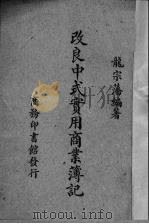 龍宗蕩編著
改良中式實用商業簿記
商務印書館發行